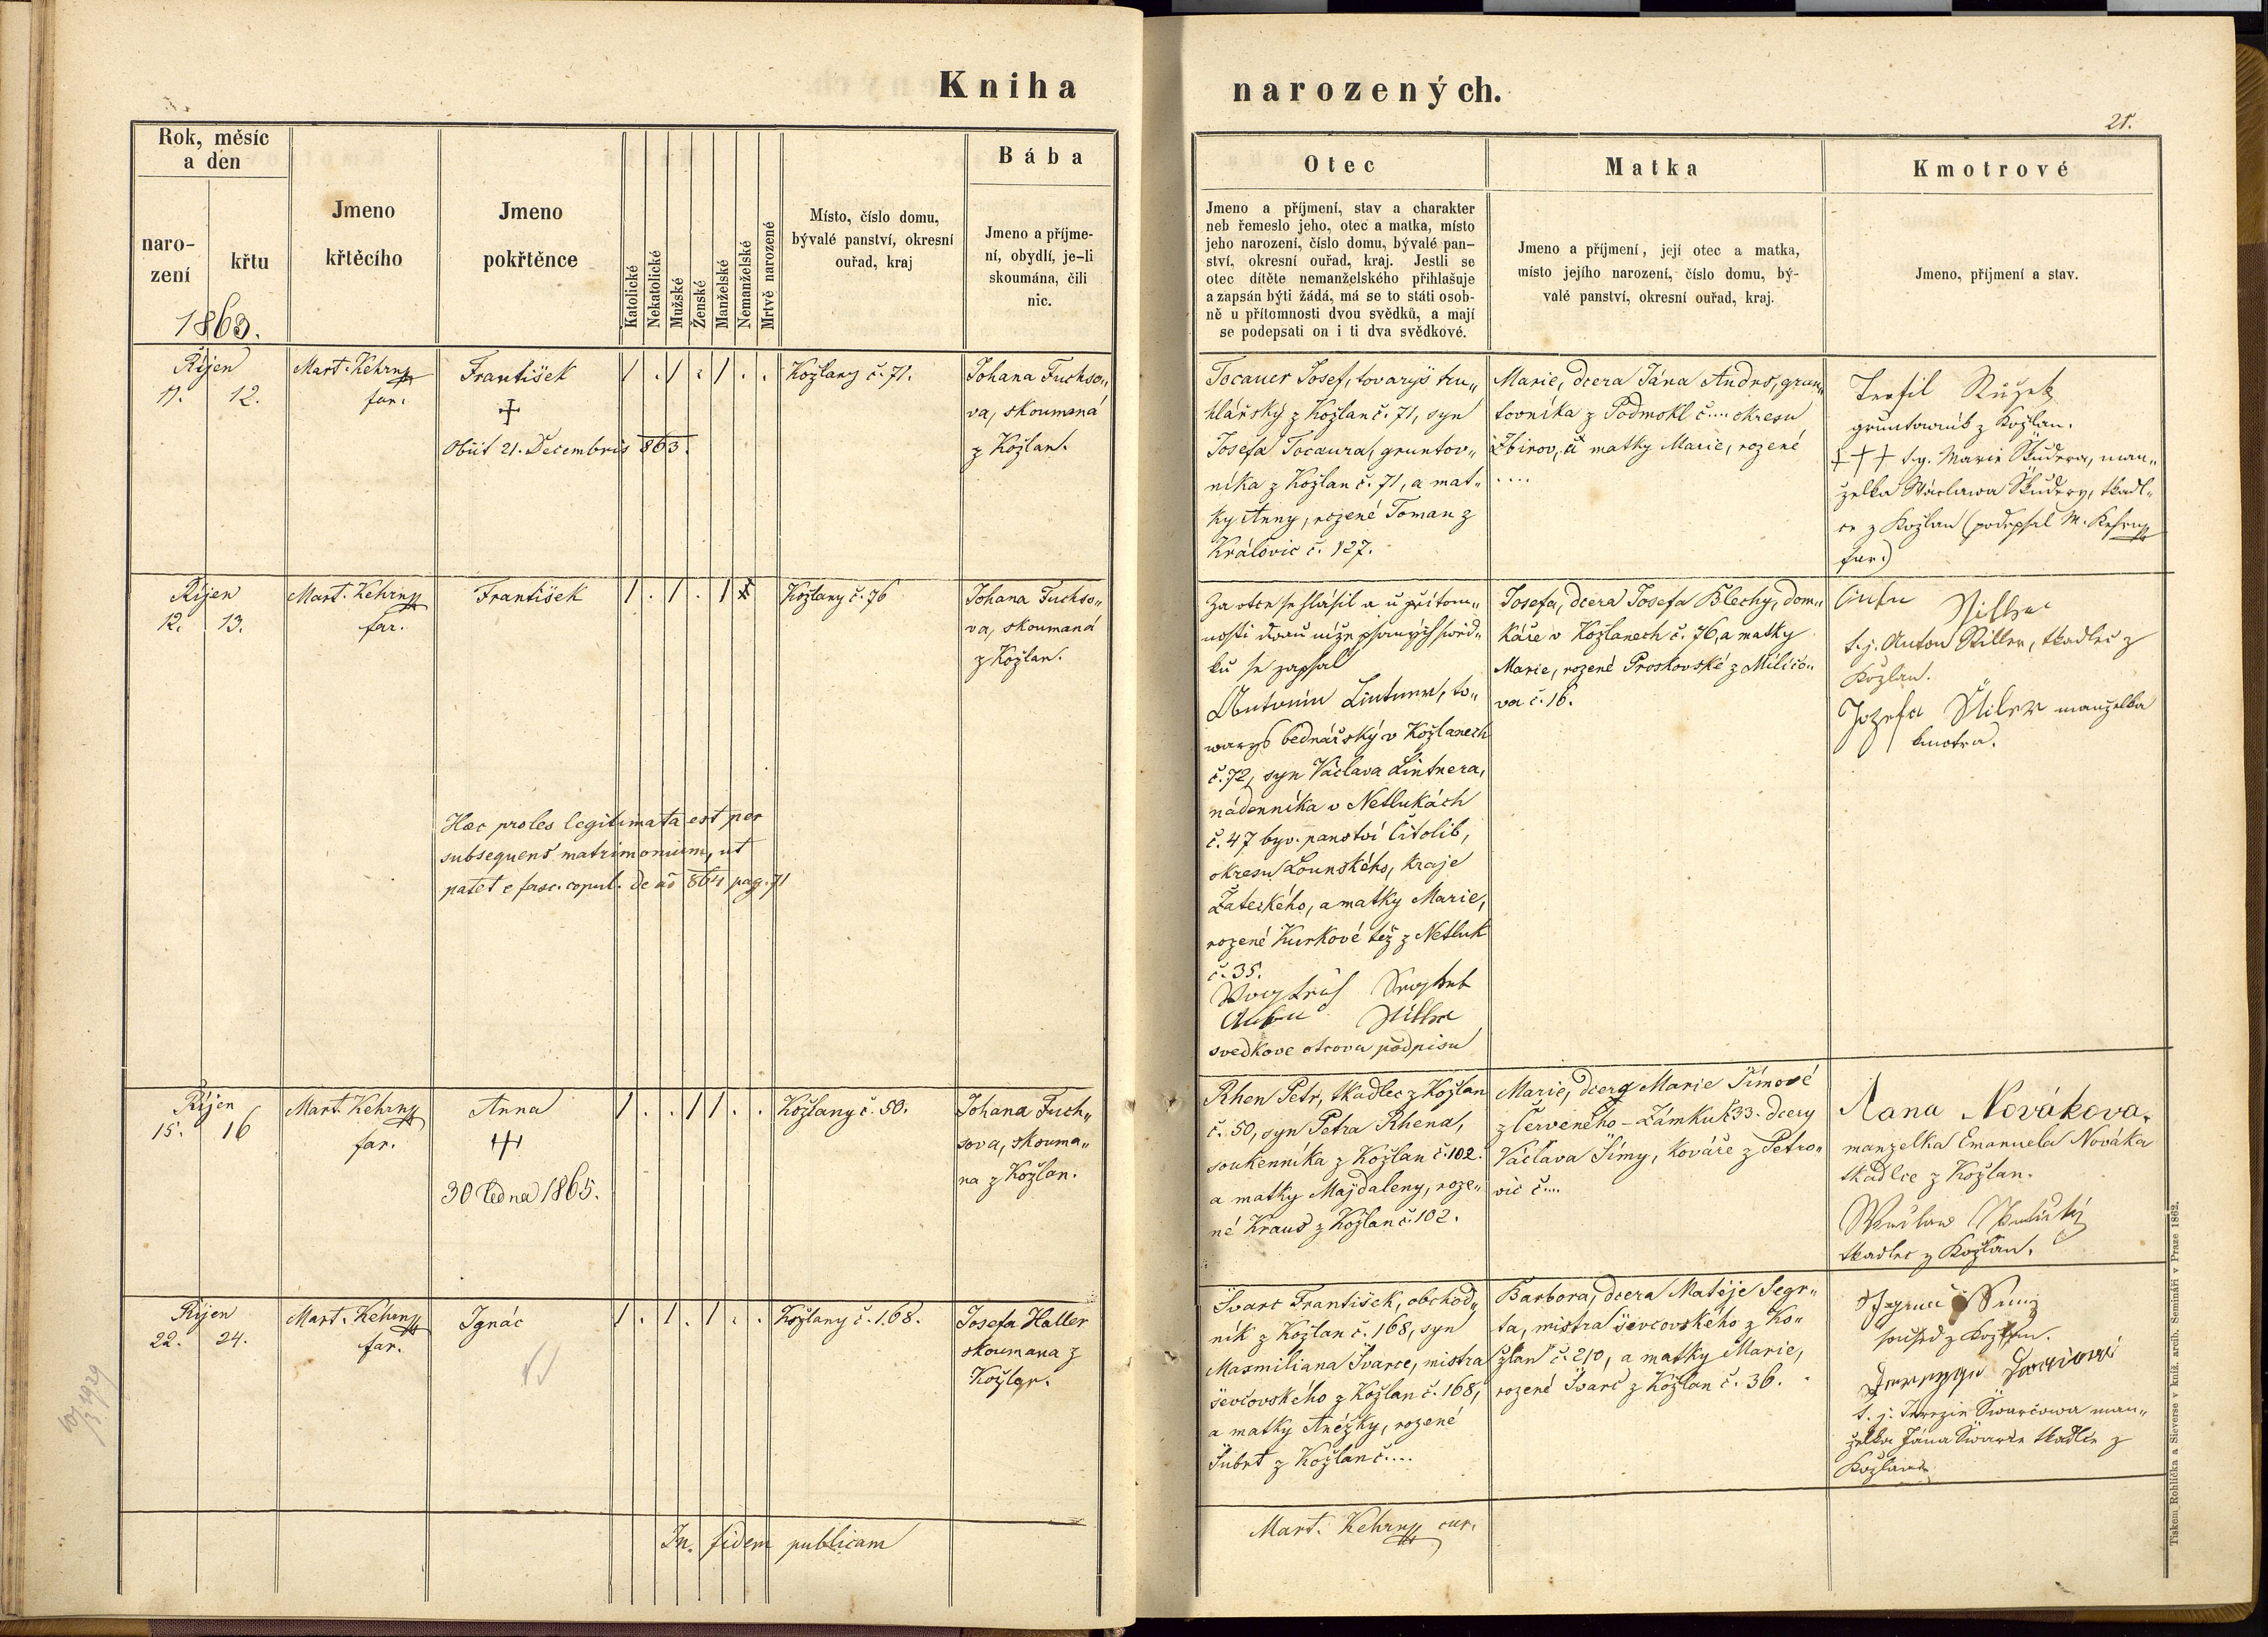 Kniha
narozených.
21.
Rok, měsíc
a den
naro-
zení
křtu
1863.
Jmeno
křtěcího
Jmeno
pokřtěnce
Katolické
Nekatolické
Mužské
Ženské
Manželské
Nemanželské
Mrtvě narozené
Místo, číslo domu,
bývalé panství, okresní
ouřad, kraj
Bába
Jmeno a příjme-
ní, obydlí, je-li
skoumána, čili
nic.
Otec
Jmeno a příjmení, stav a charakter
neb řemeslo jeho, otec a matka, místo
jeho narození, číslo domu, bývalé pan-
ství, okresní ouřad, kraj. Jestli se
otec dítěte nemanželského přihlašuje
a zapsán býti žádá, má se to státi osob-
ně u přítomnosti dvou svědků, a mají
se podepsati on i ti dva svědkové.
Matka
Jmeno a příjmení, její otec a matka,
místo jejího narození, číslo domu, bý-
valé panství, okresní ouřad, kraj.
Kmotrové
Jmeno, příjmení a stav.
Říjen
11. 12.
Mart. Kehrn
far.
František
Obiit 21. Decembris 863.
Kožlany č. 71.
Johana Fuchso„
va, skoumaná
z Kožlan.
Tocauer Josef, tovaryš tru„
hlářský z Kožlan č. 71, syn
Josefa Tocaura, gruntov„
níka z Kožlan č. 71, a mat„
ky Anny, rozené Toman z
Královic č. 127.
Marie, dcera Jána Andrs, grun„
tovníka z Podmokl č.... okresu
Zbirov, a matky Marie, rozené
....
gruntovník z Kožlan.
+++ t.j. Marie Škudera, man„
želka Wáclawa Škudery, tkadl„
ce z Kožlan (podepsal M. Kehrn
far.)
Říjen
12. 13.
Mart. Kehrn
far.
František
Haec proles legitimata est per
subsequens matrimonium, ut
patet e fasc. copul. de ao 864 pag. 71
Kožlany č. 76
Johana Fuchso„
va, skoumaná
z Kožlan.
Za otce se hlásil a u přítom„
nosti dvou níže psaných svěd„
ků se zapsal
Antonín Lintner, to„
waryš bednářský v Kožlanech
č. 72, syn Václava Lintnera,
nádenníka v Netlukách
č. 47 byv. panství Citolib,
okresu Lounského, kraje
Žateckého, a matky Marie,
rozené Kurkové též z Netluk
č. 35.
svedkove otcova podpisu
Josefa, dcera Josefa Blechy, dom„
káře v Kožlanech č. 76, a matky
Marie, rozené Proskovské z Miličo„
va č. 16.
t.j. Anton Stiller, tkadlec z
Kožlan.
Jozefa Štiler manželka
kmotra.
Říjen
15. 16
Mart. Kehrn
far.
Anna
30 ledna 1865.
Kožlany č. 50.
Johana Fuch„
sova, skouma„
na z Kožlan.
Rhen Petr, tkadlec z Kožlan
č. 50, syn Petra Rhena,
soukenníka z Kožlan č. 102.
a matky Majdaleny, roze„
né Kraus z Kožlan č. 102.
Marie, dcera Marie Šímové
z Červeného-Zámku č 33. dcery
Václava Šímy, kováře z Petro„
vic č....
Nana Novákova.
manzelka Emanuela Nováka
tkadlce z Kožlan.
tkadlec z Kožlan.
Říjen
22. 24.
Mart. Kehrn
far.
Ignác
Kožlany č. 168.
Josefa Haller
skoumana z
Kožlan.
Švarc František, obchod„
ník z Kožlan č. 168, syn
Maxmiliana Švarce, mistra
ševcovského z Kožlan č. 168,
a matky Anéžky, rozené
Šubrt z Kožlan č....
Barbora, dcera Matěje Segr„
ta, mistra ševcovského z Ko„
žlan č. 210, a matky Marie,
rozené Švarc z Kožlan č. 36.
soused z Kožlan.
t. j. Terezie Šwarcowa man„
želka Jána Šwarce tkadlce z
Kožlan
In fidem publicam
Mart. Kehrn cur.
Tiskem Rohlíčka a Sieverse v kníž. arcib. Semináři v Praze 1862.